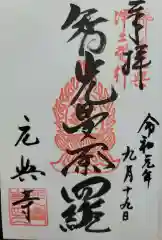 奉拝
令和元年
九月十九日
智光曼荼羅
元興寺